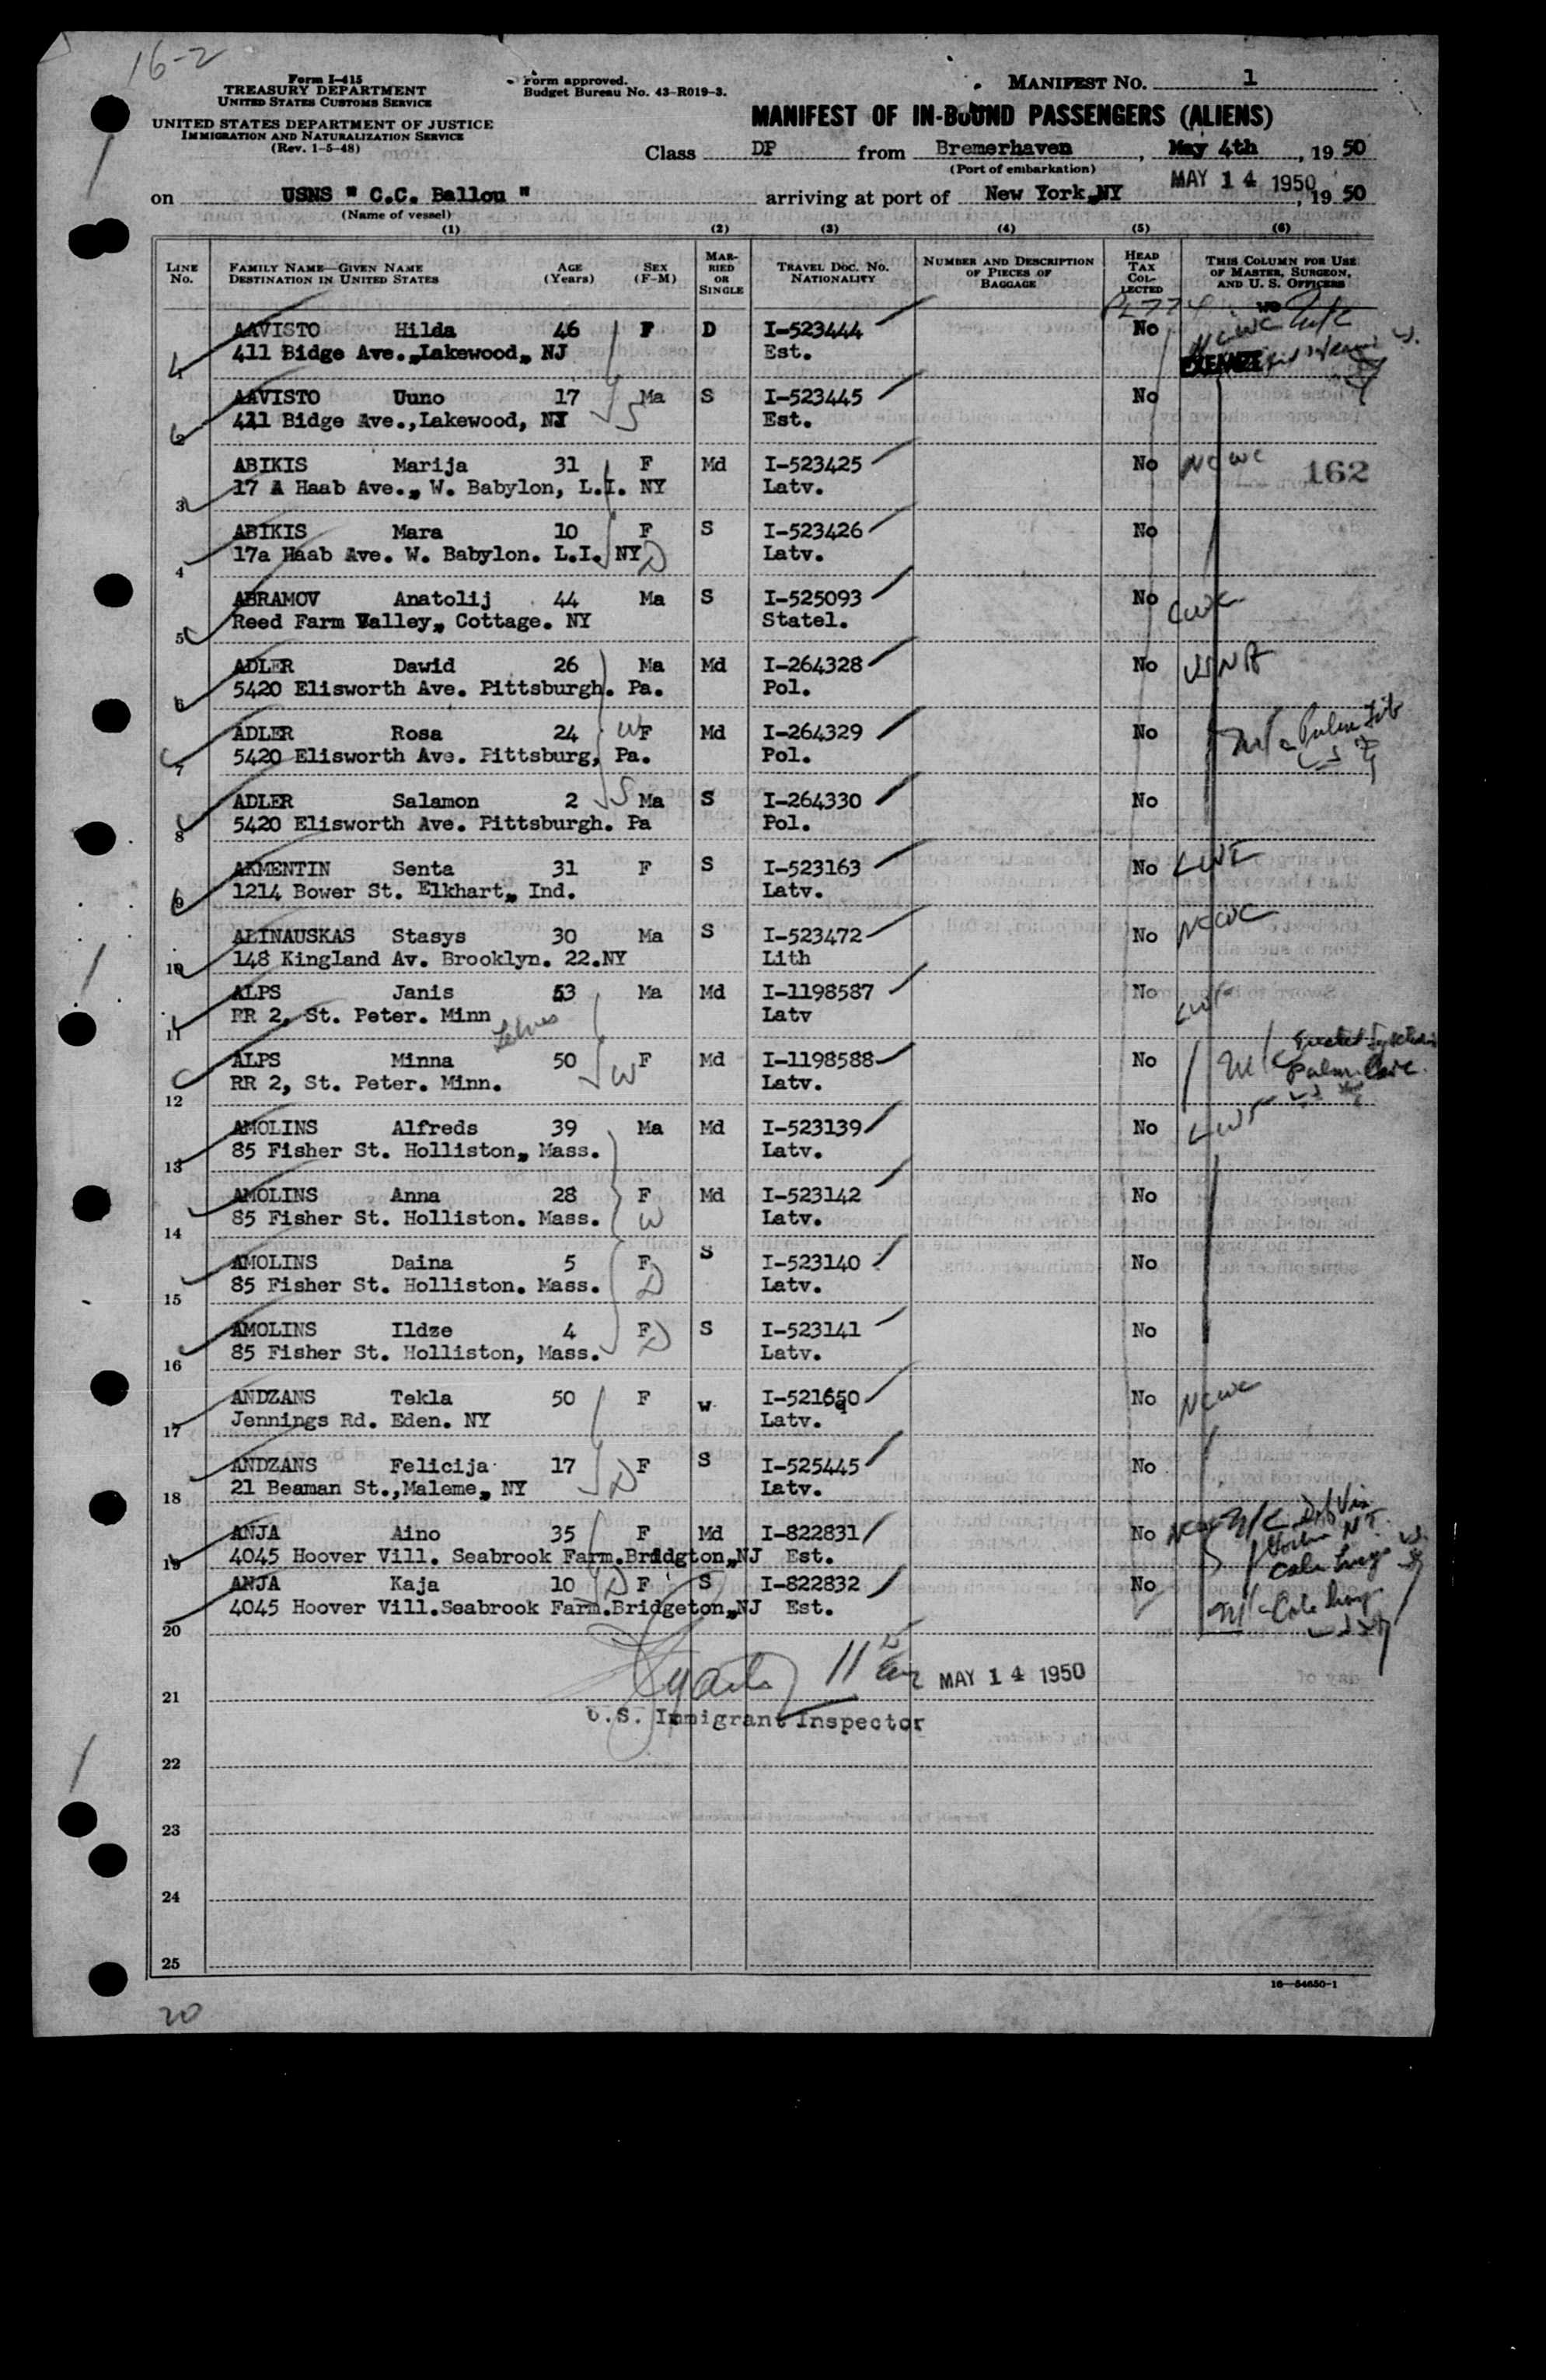 16-2
Form I-415
TREASURY DEPARTMENT
UNITED STATES CUSTOMS SERVICE
Form approved.
Budget Bureau No. 43-R019-3.
MANIFEST NO. 1
UNITED STATES DEPARTMENT OF JUSTICE
IMMIGRATION AND NATURALIZATION SERVICE
(Rev. 1-5-48)
MANIFEST OF IN-BOUND PASSENGERS (ALIENS)
Class DP from Bremerhaven, May 4th, 19 50
(Port of embarkation)
MAY 14 1950
on USNS " C.C. Ballou " arriving at port of New York,NY, 19 50
(Name of vessel)
(1) (2) (3) (4) (5) (6)
LINE No. FAMILY NAME—GIVEN NAME DESTINATION IN UNITED STATES AGE (Years) SEX (F-M) MARRIED OR SINGLE TRAVEL DOC. NO. NATIONALITY NUMBER AND DESCRIPTION OF PIECES OF BAGGAGE HEAD TAX COLLECTED THIS COLUMN FOR USE OF MASTER, SURGEON, AND U. S. OFFICERS
AAVISTO Hilda 46 F D I-523444 No NCWC
1 411 Bidge Ave.,Lakewood, NJ Est.
AAVISTO Uuno 17 Ma S I-523445 No
2 411 Bidge Ave.,Lakewood, NJ S Est.
ABIKIS Marija 31 F Md I-523425 No NCWC 162
3 17 A Haab Ave., W. Babylon, L.I. NY Latv.
ABIKIS Mara 10 F S I-523426 No
4 17a Haab Ave. W. Babylon. L.I. NY D Latv.
ABRAMOV Anatolij 44 Ma S I-525093 No CWC
5 Reed Farm Valley, Cottage. NY Statel.
ADLER Dawid 26 Ma Md I-264328 No USNA
6 5420 Elisworth Ave. Pittsburgh. Pa. Pol.
ADLER Rosa 24 W F Md I-264329 No
7 5420 Elisworth Ave. Pittsburg, Pa. Pol.
ADLER Salamon 2 S Ma S I-264330 No
8 5420 Elisworth Ave. Pittsburgh. Pa Pol.
AKMENTIN Senta 31 F S I-523163 No LWF
9 1214 Bower St. Elkhart, Ind. Latv.
ALINAUSKAS Stasys 30 Ma S I-523472 No NCWC
10 148 Kingland Av. Brooklyn. 22.NY Lith
ALPS Janis 53 Ma Md I-1198587 No LWF
11 RR 2, St. Peter. Minn Latv
ALPS Minna 50 F Md I-1198588 No
12 RR 2, St. Peter. Minn. W Latv.
AMOLINS Alfreds 39 Ma Md I-523139 No LWF
13 85 Fisher St. Holliston, Mass. Latv.
AMOLINS Anna 28 F Md I-523142 No
14 85 Fisher St. Holliston. Mass. W Latv.
AMOLINS Daina 5 F S I-523140 No
15 85 Fisher St. Holliston. Mass. D Latv.
AMOLINS Ildze 4 F D S I-523141 No
16 85 Fisher St. Holliston, Mass. Latv.
ANDZANS Tekla 50 F W I-521690 No NCWC
17 Jennings Rd. Eden. NY Latv.
ANDZANS Felicija 17 D F S I-525445 No
18 21 Beaman St.,Maleme, NY Latv.
ANJA Aino 35 F Md I-822831 No
19 4045 Hoover Vill. Seabrook Farm.Bridgton,NJ Est.
ANJA Kaja 10 D F S I-822832 No
20 4045 Hoover Vill.Seabrook Farm.Bridgeton,NJ Est.
MAY 14 1950
21
U.S. Immigrant Inspector
22
23
24
25
16—54650-1
20